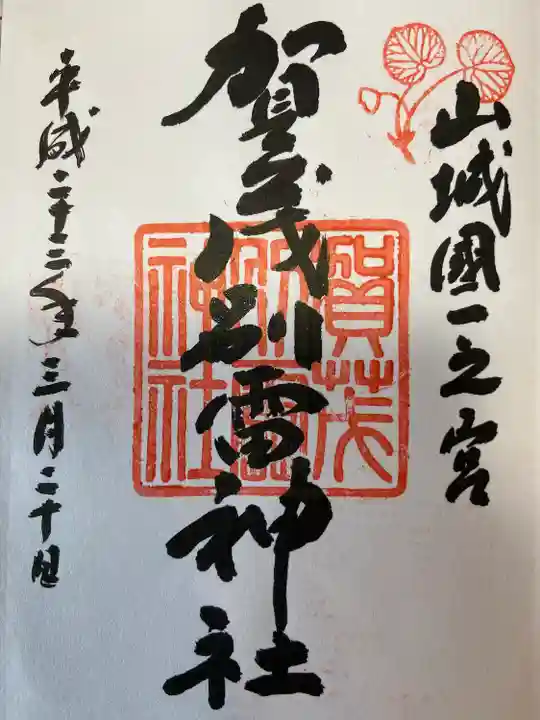 山城國一之宮
賀茂別雷神社
賀茂
別雷
神社
平成二十三年三月二十日